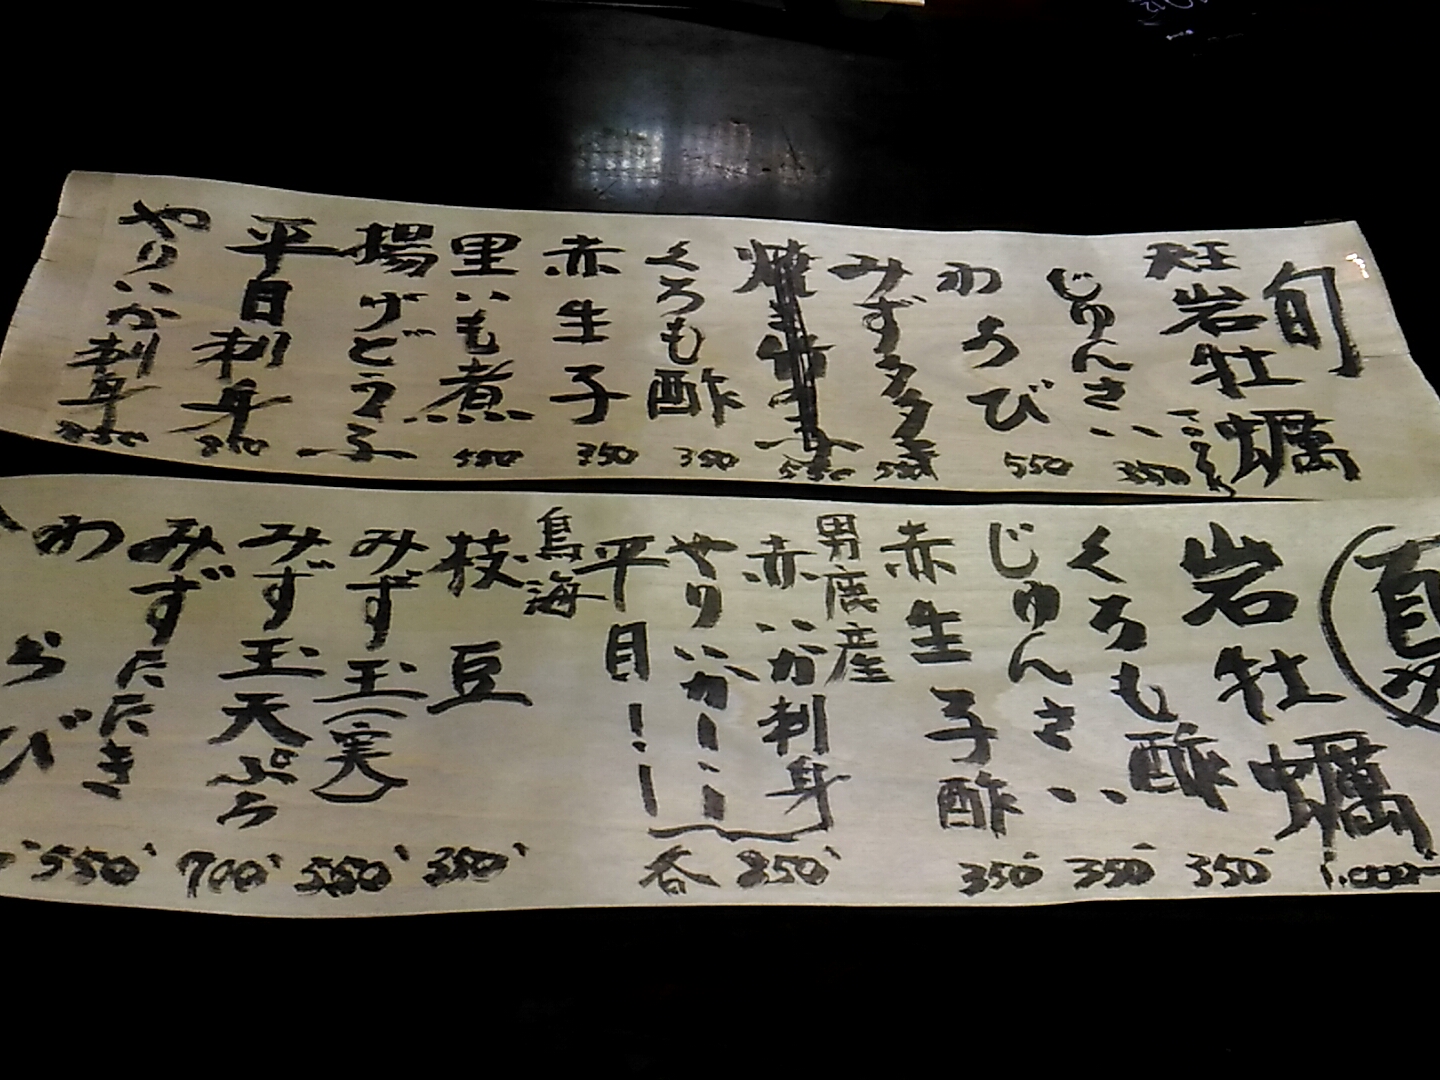 旬
天王
岩牡蠣
じゅんさい 350
わらび 550
みずタタキ
くろも酢 350
赤生子 350
里いも煮 580
揚げどうふ
平目刺身 850
やりいか刺身 850
夏
岩牡蠣 1,000
くろも酢 350
じゅんさい 350
赤生子酢 350
男鹿産
赤いか刺身
やりいか 〃
平目 〃
各 850
鳥海
枝豆 350
みず玉(実) 550
みず玉天ぷら 700
みずたたき 550
わらび